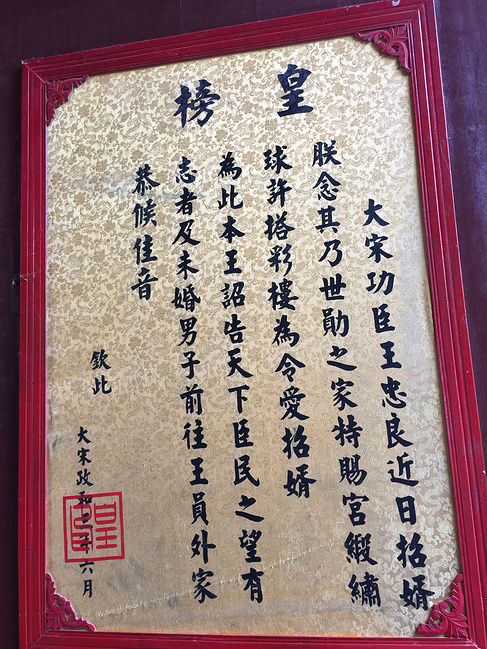 皇榜
大宋功臣王忠良近日招婿
朕念其乃世勛之家特賜宮緞繡
球許搭彩樓為令愛招婿
為此本王詔告天下臣民之望有
志者及未婚男子前往王員外家
恭候佳音
欽此
大宋政和年六月